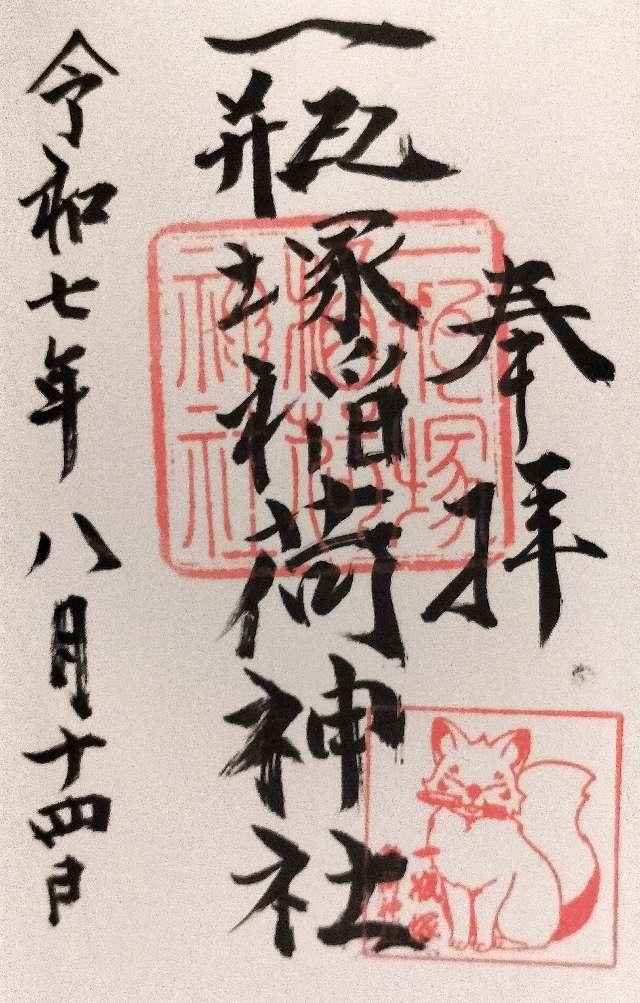 奉拝
一瓶塚稲荷神社
令和七年八月十四日
一瓶塚稲荷神社
一瓶塚
稲荷神社